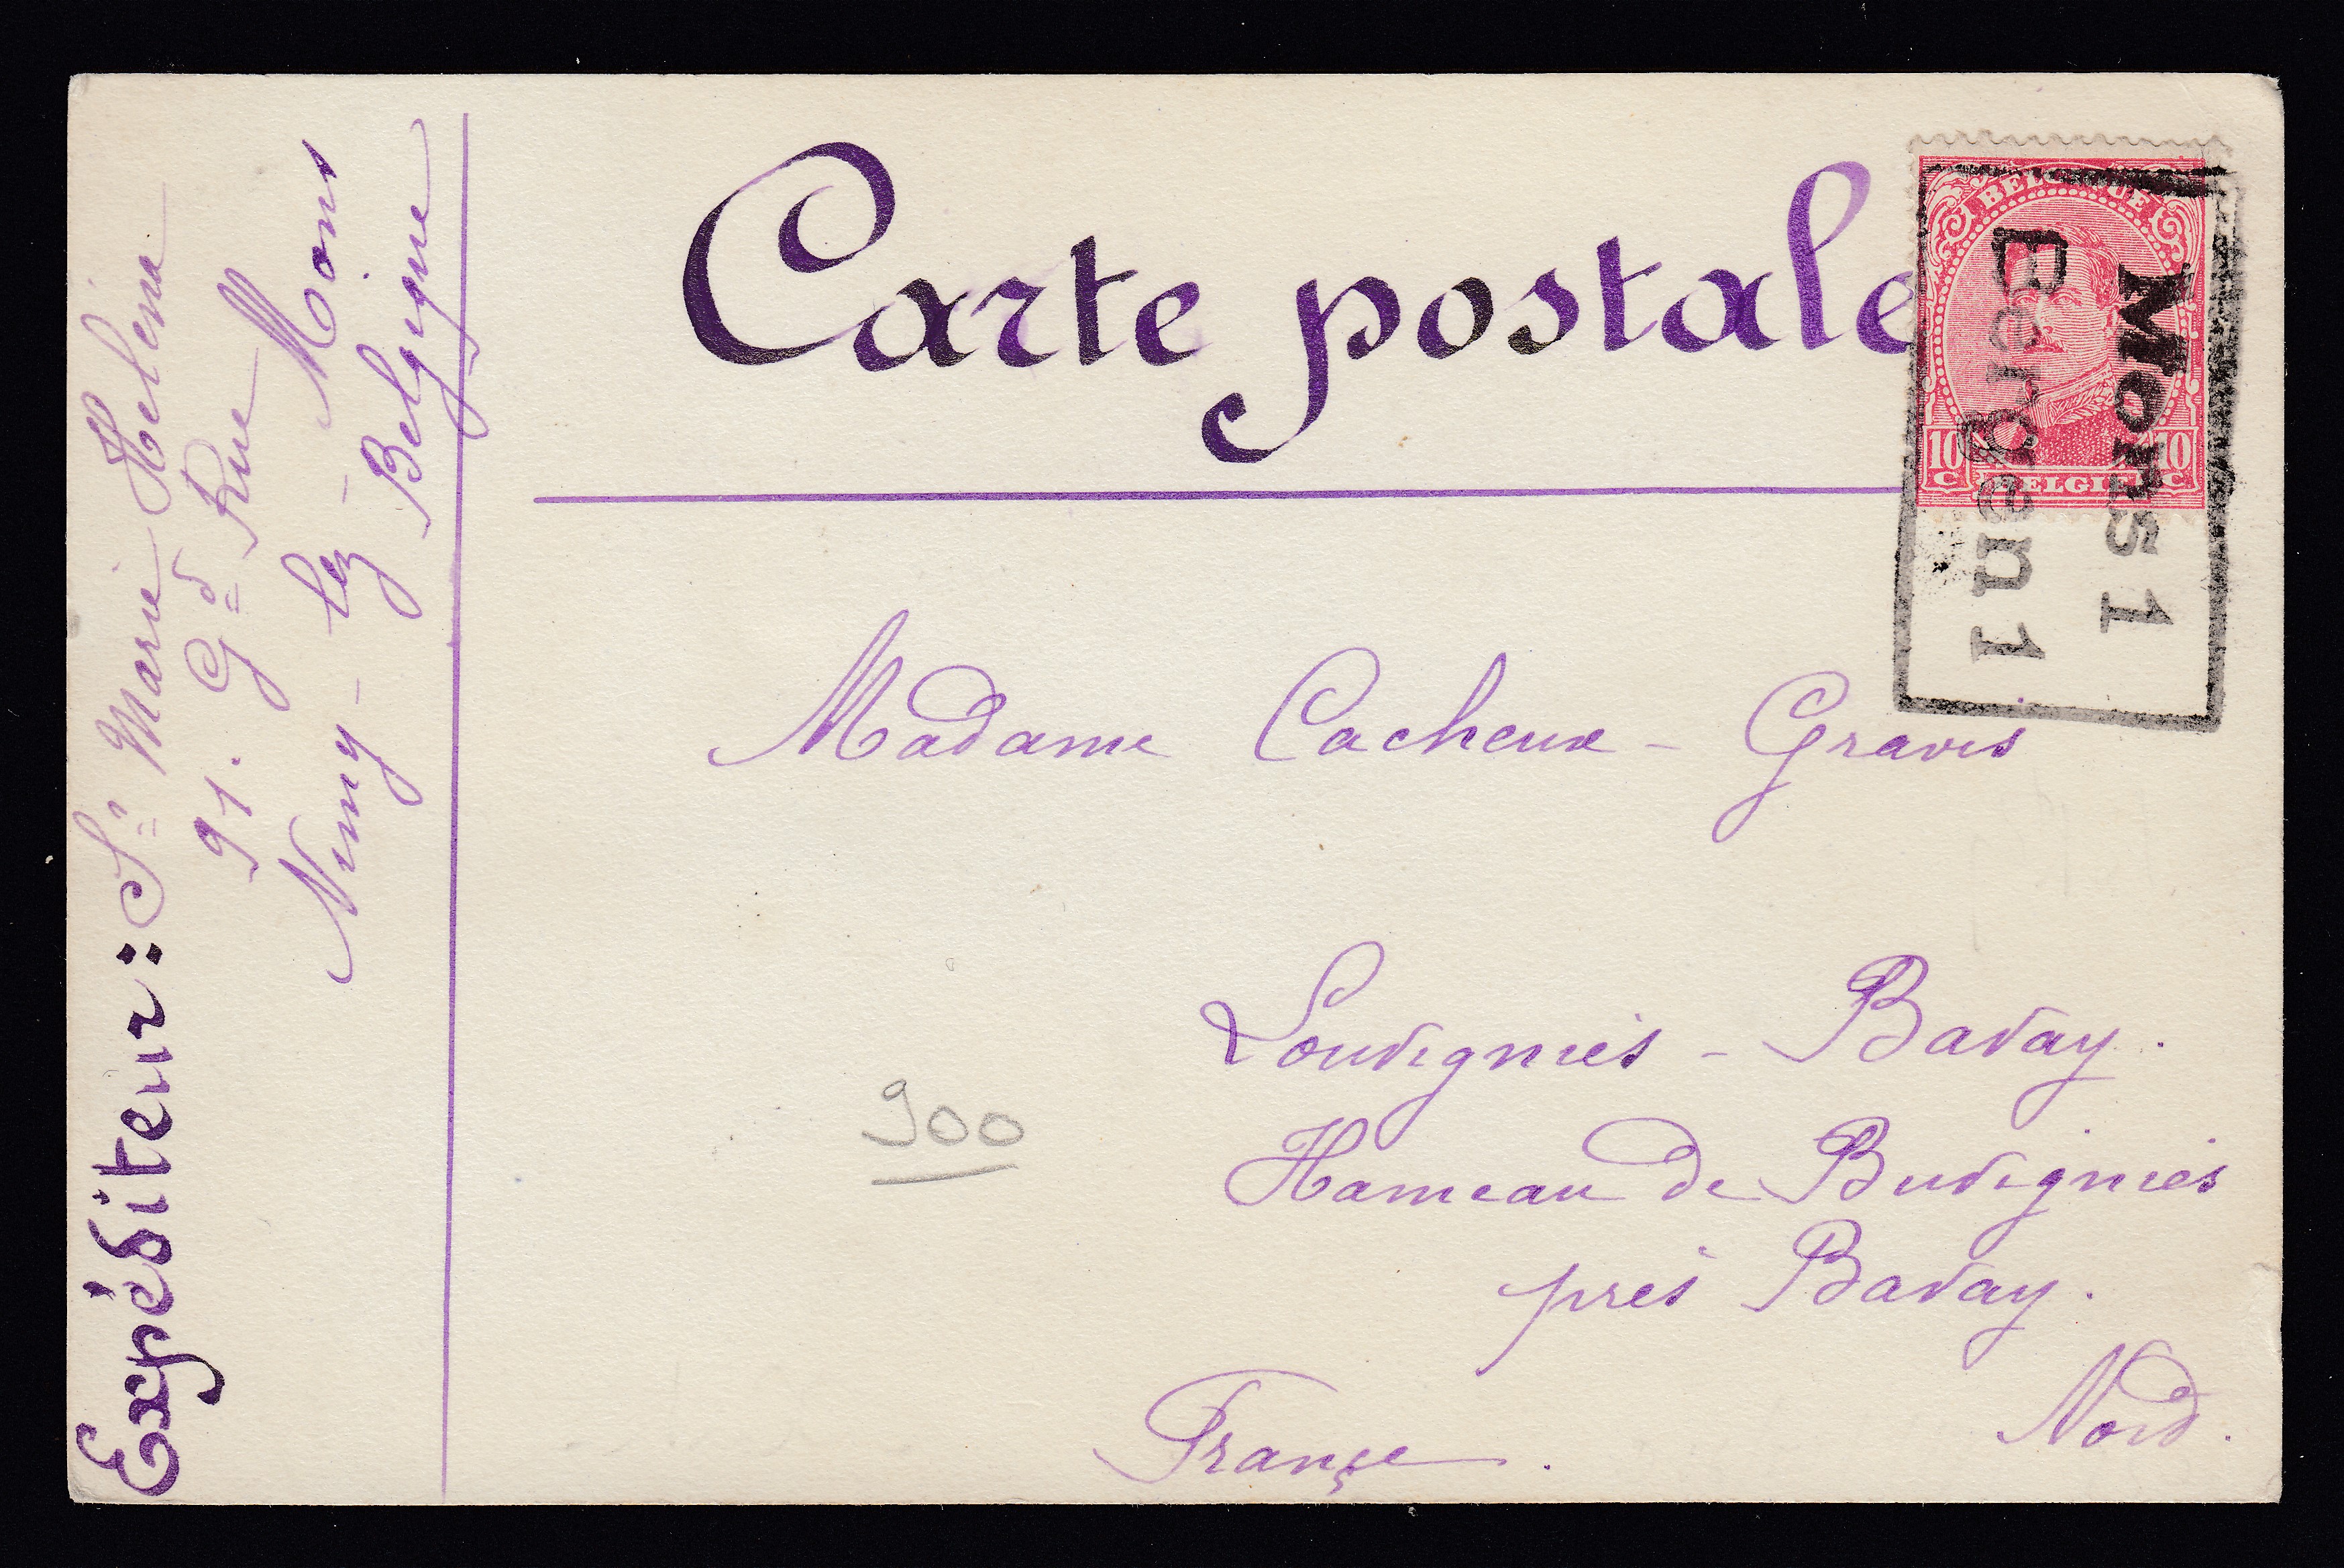 Carte postale
BELGIQUE
10 C
10 C
BELGIË
Mons 1
Bergen 1
Expéditeur : Sr Marie Helena
91. Gd Rue
Nimy - lez - Mons
Belgique
Madame Cacheux - Gravis
Louvignies - Bavay.
Hameau de Buvignies
près Bavay.
Nord.
France.
900